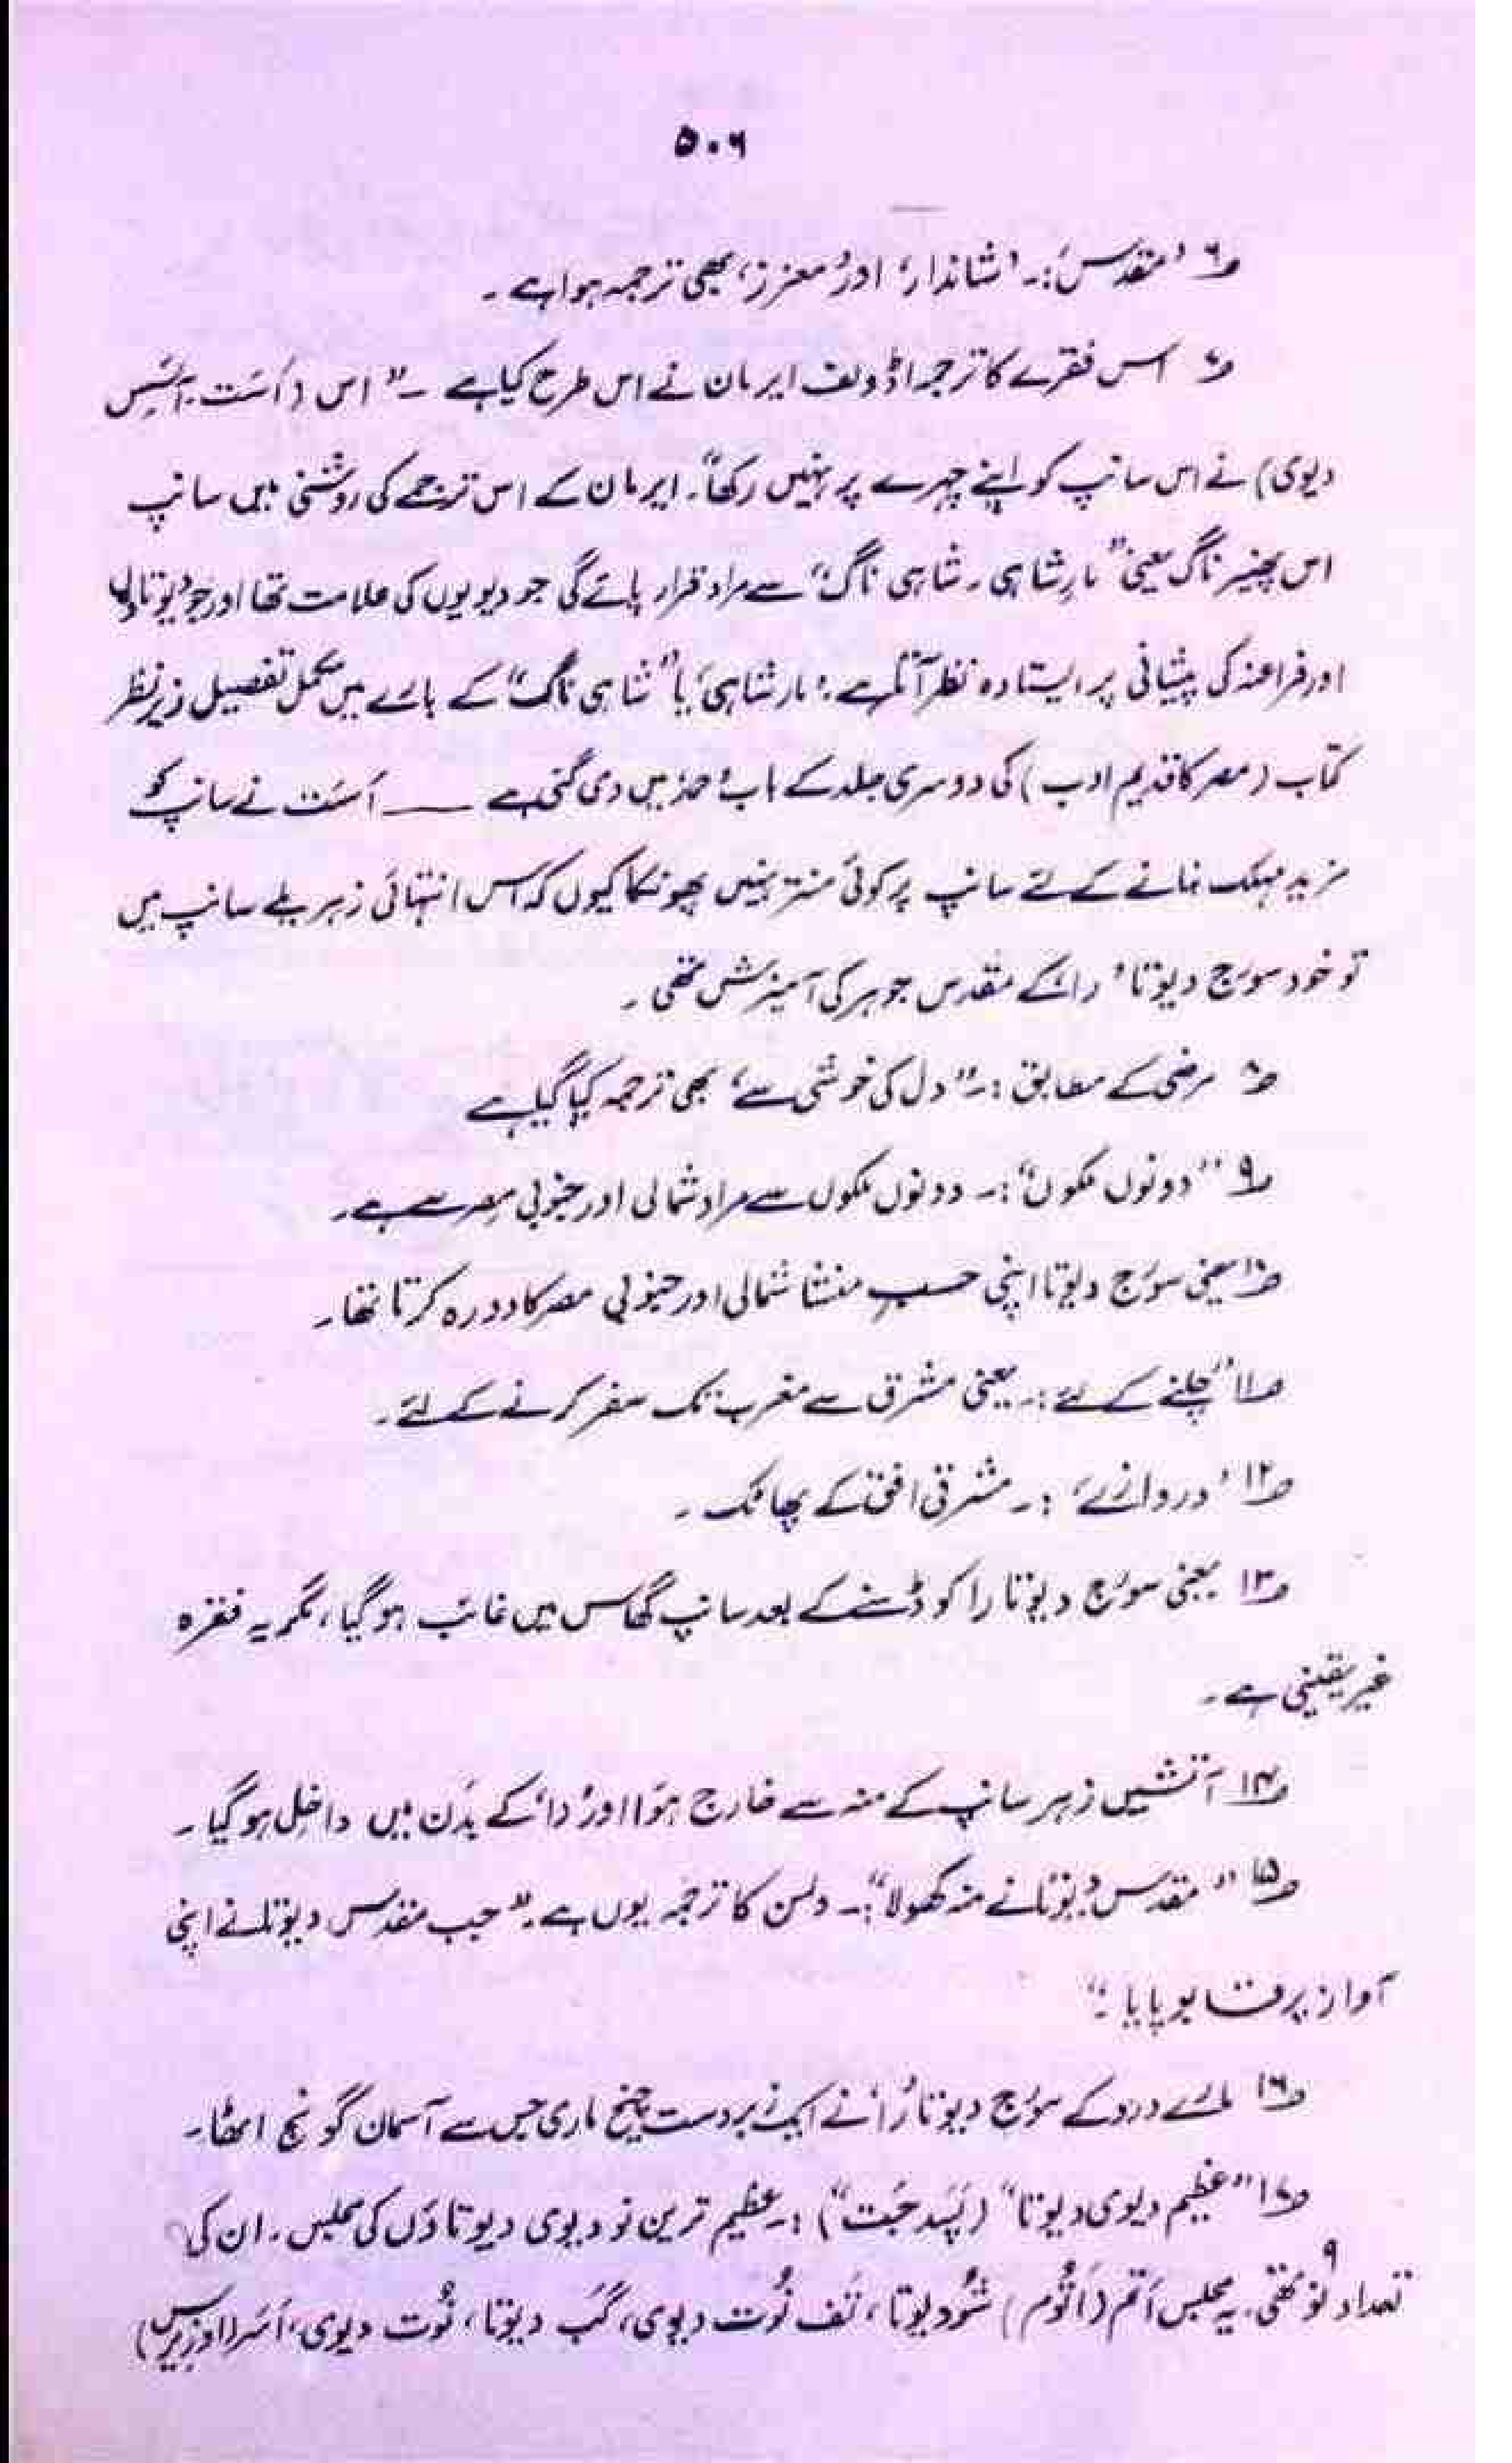 ۵۰۶
؂۶ 'مقدس':۔ 'شاندار' اور 'معزز' بھی ترجمہ ہوا ہے۔
؂۷ اس فقرے کا ترجمہ اڈولف ایرمان نے اس طرح کیا ہے ۔ "اس (اَسَت۔ آئسِس
دیوی) نے اس سانپ کو اپنے چہرے پر نہیں رکھا"۔ ایرمان کے اس ترجمے کی روشنی میں سانپ
اس پھنیر ناگ یعنی "مارِ شاہی ۔ شاہی ناگ" سے مراد قرار پائے گی جو دیویوں کی علامت تھا اور جو دیوتاؤں
اور فراعنہ کی پیشانی پر ایستادہ نظر آتا ہے؛ 'مار شاہی' یا "شاہی ناگ" کے بارے میں مکمل تفصیل زیر نظر
کتاب (مصر کا قدیم ادب) کی دوسری جلد کے باب 'حمد' میں دی گئی ہے ــــ اَسَت نے سانپ کو
مزید مہلک بنانے کے لئے سانپ پر کوئی منتر نہیں پھونکا کیوں کہ اس انتہائی زہریلے سانپ میں
تو خود سورج دیوتا 'را' کے مقدس جوہر کی آمیزش تھی۔
؂۸ مرضی کے مطابق :۔ "دل کی خوشی سے" بھی ترجمہ کیا گیا ہے
؂۹ "دونوں ملکوں":۔ دونوں ملکوں سے مراد شمالی اور جنوبی مصر سے ہے۔
؂۱۰ یعنی سورج دیوتا اپنی حسبِ منشا شمالی اور جنوبی مصر کا دورہ کرتا تھا۔
؂۱۱ 'چلنے کے لئے':۔ یعنی مشرق سے مغرب تک سفر کرنے کے لئے۔
؂۱۲ 'دروازے' :۔ مشرقی افق کے پھاٹک۔
؂۱۳ یعنی سورج دیوتا را کو ڈسنے کے بعد سانپ گھاس میں غائب ہو گیا، مگر یہ فقرہ
غیر یقینی ہے۔
؂۱۴ آتشیں زہر سانپ کے منہ سے خارج ہوا اور 'را' کے بدن میں داخل ہو گیا۔
؂۱۵ "مقدس دیوتا نے منہ کھولا":۔ ولسن کا ترجمہ یوں ہے۔ "جب مقدس دیوتا نے اپنی
آواز پر قابو پایا۔"
؂۱۶ مارے درد کے سورج دیوتا 'را' نے ایک زبردست چیخ ماری جس سے آسمان گونج اٹھا۔
؂۱۷ "عظیم دیوی دیوتا" (پَسِد جَت") :۔ عظیم ترین نو دیوی دیوتاؤں کی مجلس۔ ان کی
تعداد نو ۹ تھی۔ یہ مجلس اَتم (اَتُوم) شُو دیوتا، تَف نُوت دیوی، گَب دیوتا، نُوت دیوی، اَسَر (اوزیرس)